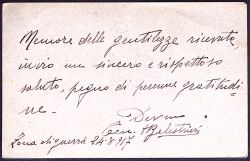 Memore delle gentilezze ricevute,
invio un sincero e rispettoso
saluto, pegno di perenne gratitudi
ne.
Devmo
Ten.
Zona di guerra 24-8-917